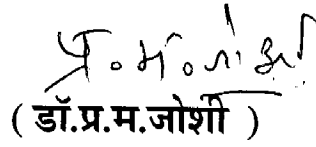 प्र. म. जोशी
( डॉ.प्र.म.जोशी )